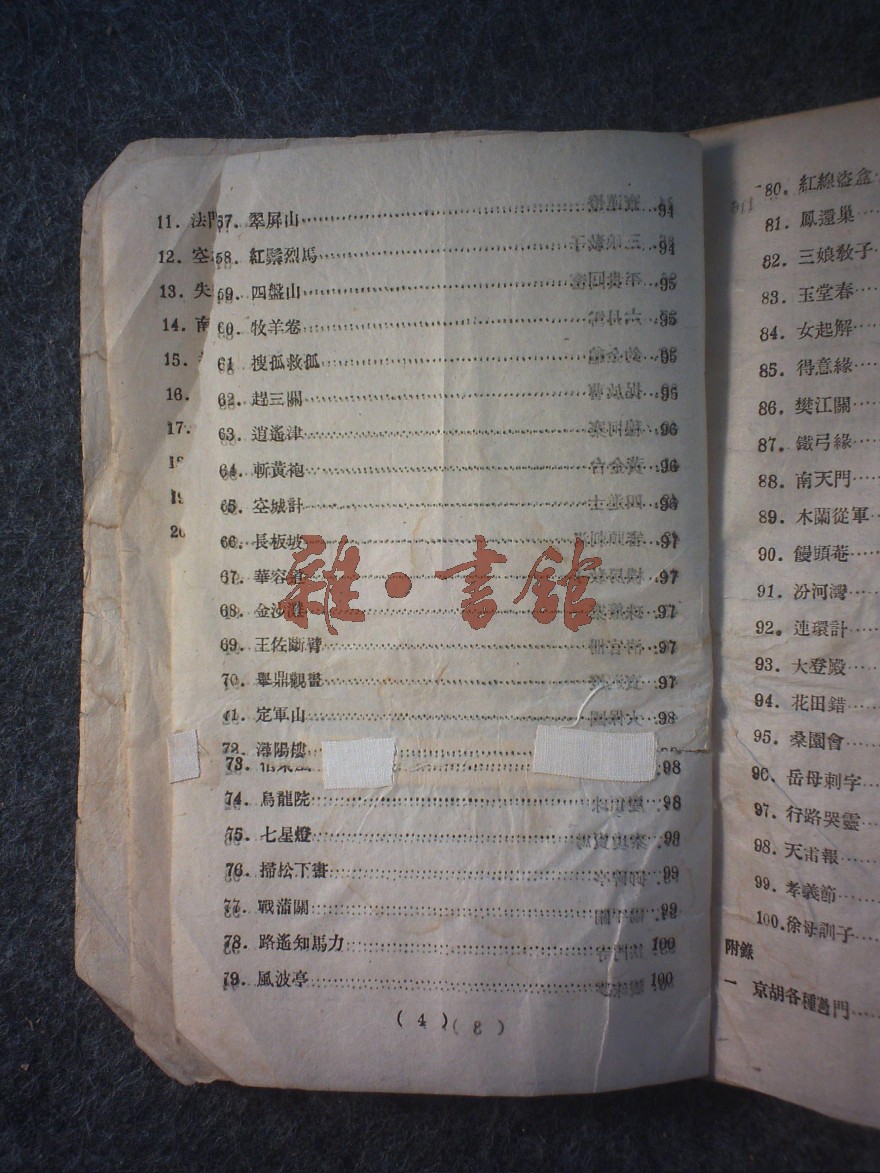 11. 法門
12. 空
13. 失
14. 南
15.
16.
17.
57. 翠屏山 94
58. 紅鬃烈馬 94
59. 四盤山 95
60. 牧羊卷 95
61. 搜孤救孤 95
62. 趕三關 95
63. 逍遙津 96
64. 斬黃袍 96
65. 空城計 96
66. 長板坡 97
67. 華容道 97
68. 金沙灘 97
69. 王佐斷臂 97
70. 舉鼎觀畫 97
71. 定軍山 98
72. 潯陽樓
73. 98
74. 烏龍院 98
75. 七星燈 99
76. 掃松下書 99
77. 戰蒲關 99
78. 路遙知馬力 100
79. 風波亭 100
(4)(8)
80. 紅線盜盒
81. 鳳還巢
82. 三娘教子
83. 玉堂春
84. 女起解
85. 得意緣
86. 樊江關
87. 鐵弓緣
88. 南天門
89. 木蘭從軍
90. 饅頭菴
91. 汾河灣
92. 連環計
93. 大登殿
94. 花田錯
95. 桑園會
96. 岳母刺字
97. 行路哭靈
98. 天雷報
99. 孝義節
100. 徐母訓子
附錄
一 京胡各種過門
雜·書館